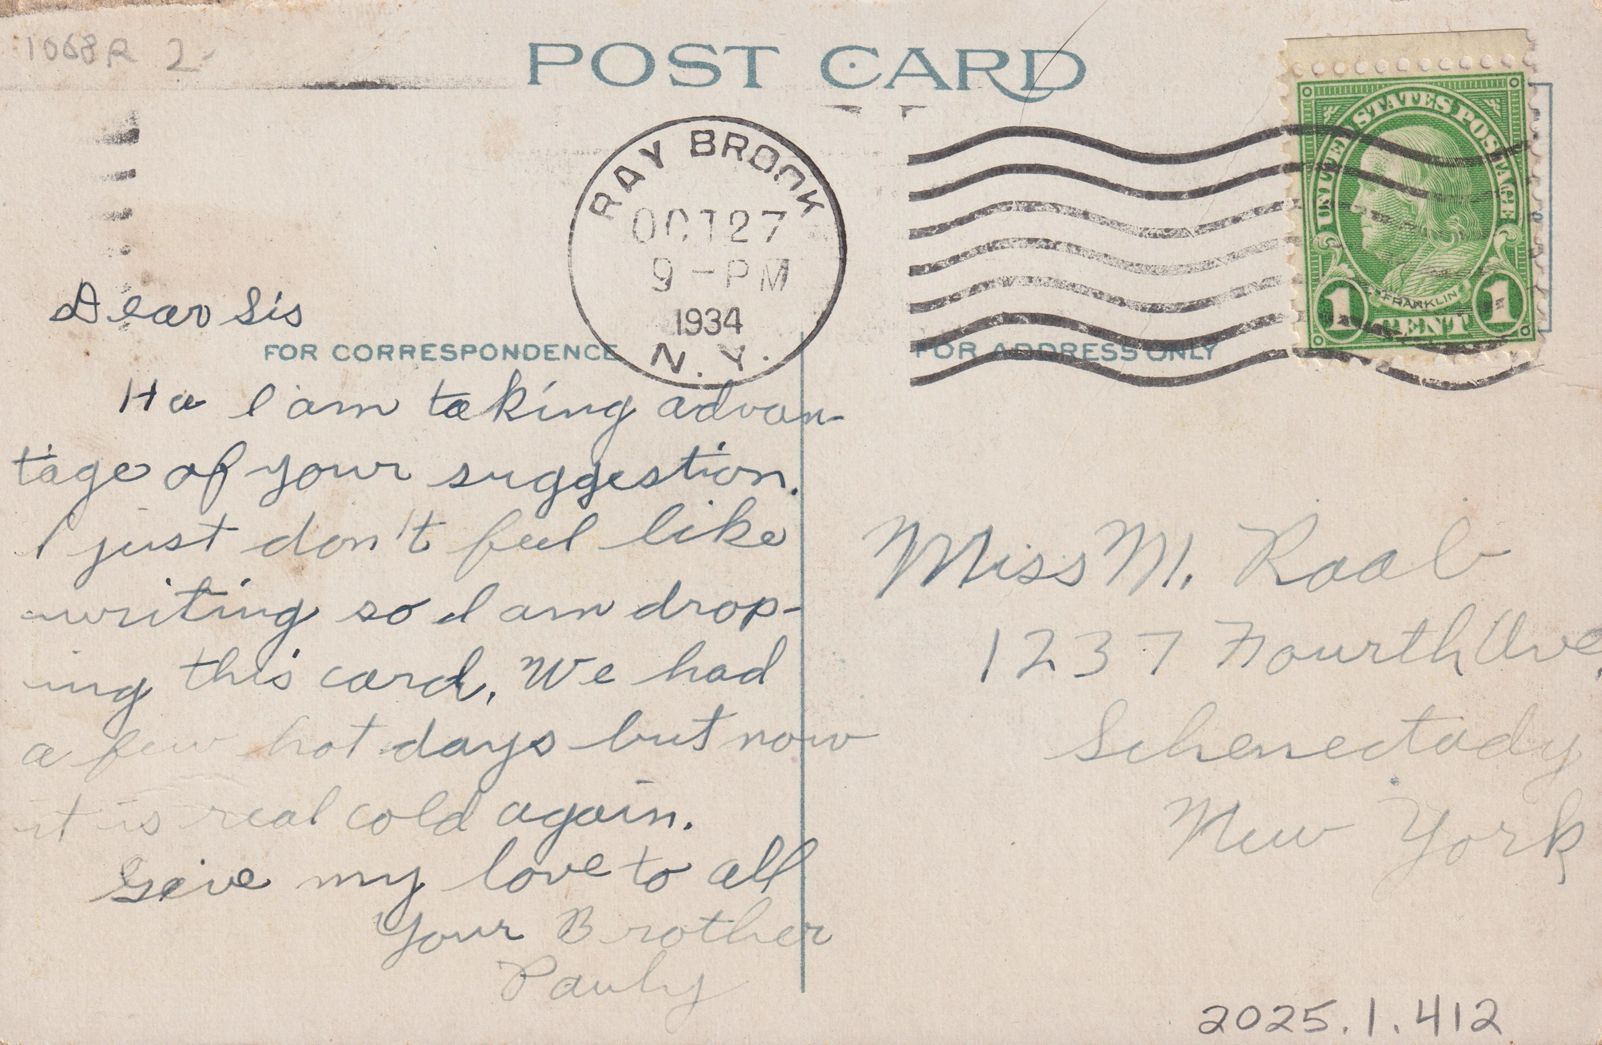 1068R 2-
POST CARD
UNITED STATES POSTAGE
FRANKLIN
1 CENT 1
RAY BROOK
OCT 27
9-PM
1934
N.Y.
FOR CORRESPONDENCE
FOR ADDRESS ONLY
Dear Sis
Ha I am taking advan-
tage of your suggestion.
I just don't feel like
writing so I am drop-
ing this card. We had
a few hot days but now
it is real cold again.
Give my love to all
Your Brother
Pauly
Miss M. Raab
1237 Fourth Ave.
Schenectady
New York
2025.1.412